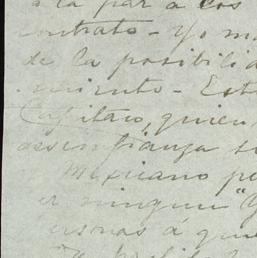 a la par a los
ntrato - Yo m
de la posibilid
miento - Est
Capitan, quien
desconfianza s
Mexicano pe
er ningun "Y
ersonas á quie